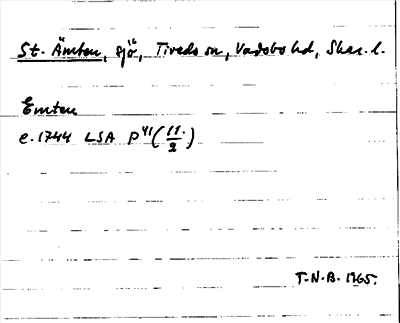 St. Ämten, sjö, Tiveds sn, Vadsbo hd, Skar. l.
Emten
e. 1744 LSA P 41 (11/2)
T.N.B. 1965.